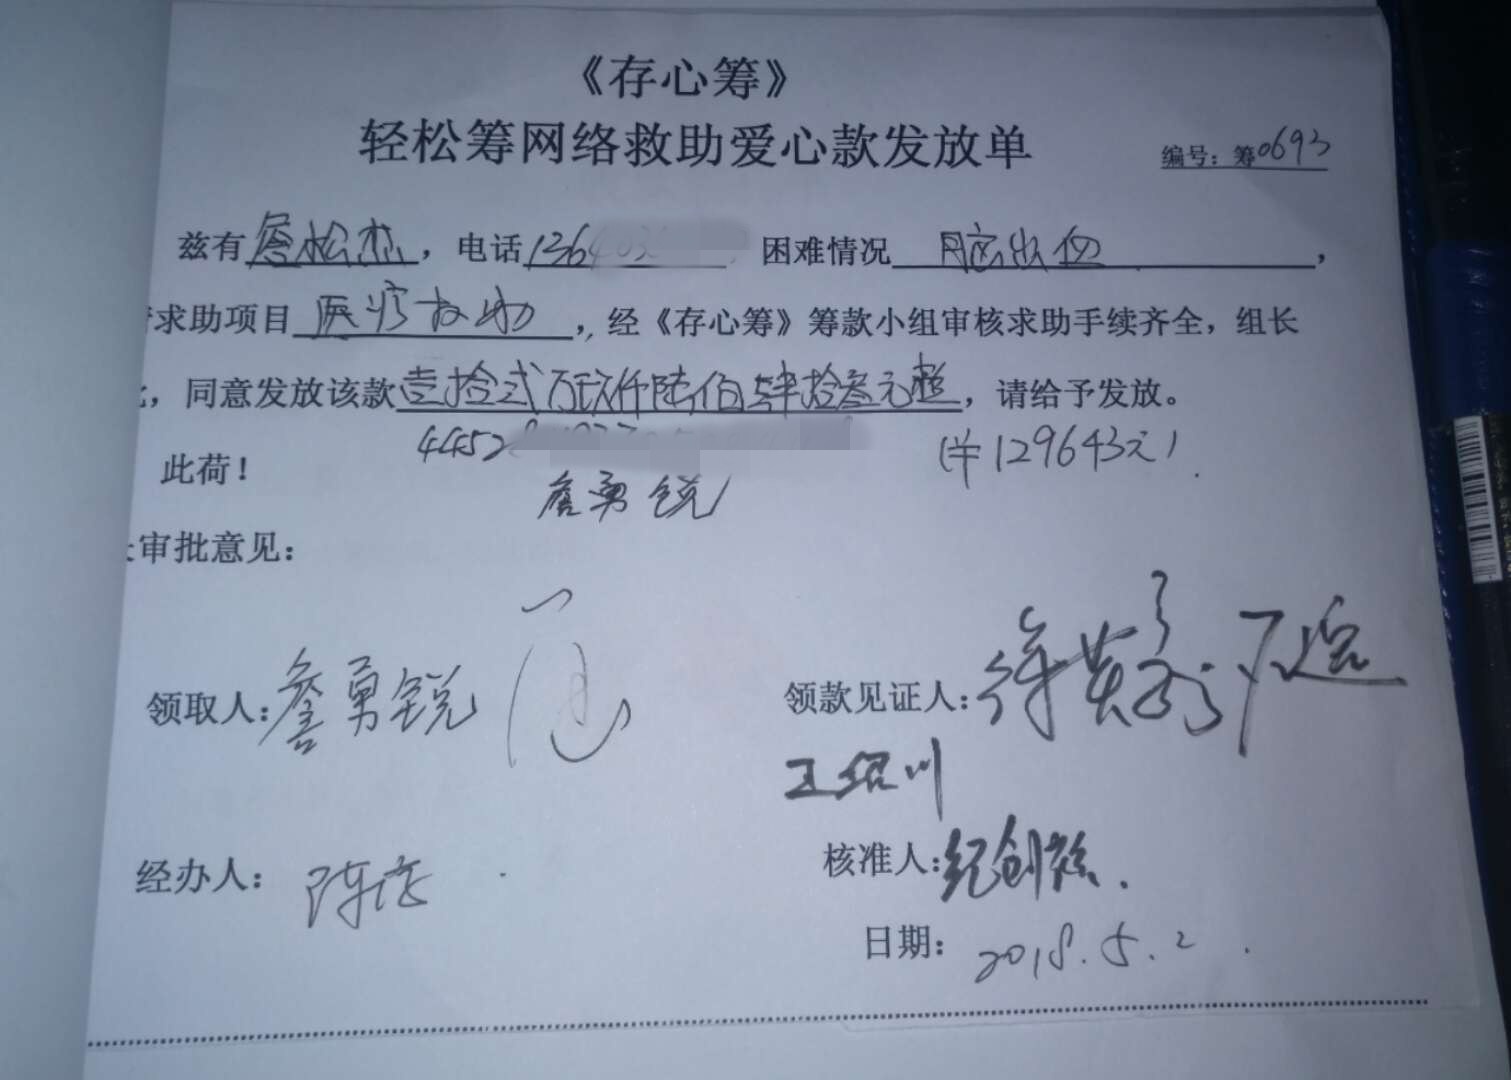 《存心筹》
轻松筹网络救助爱心款发放单
编号：筹0693
兹有詹松杰，电话1364032 困难情况 脑出血，
求助项目 医疗救助，经《存心筹》筹款小组审核求助手续齐全，组长
，同意发放该款壹拾弍万玖仟陆佰肆拾叁元整，请给予发放。
此荷！ 4452 (¥129643元)
詹勇锐
审批意见：
领取人：詹勇锐
领款见证人：
王绍川
经办人：
核准人：纪创
日期：2018.5.2